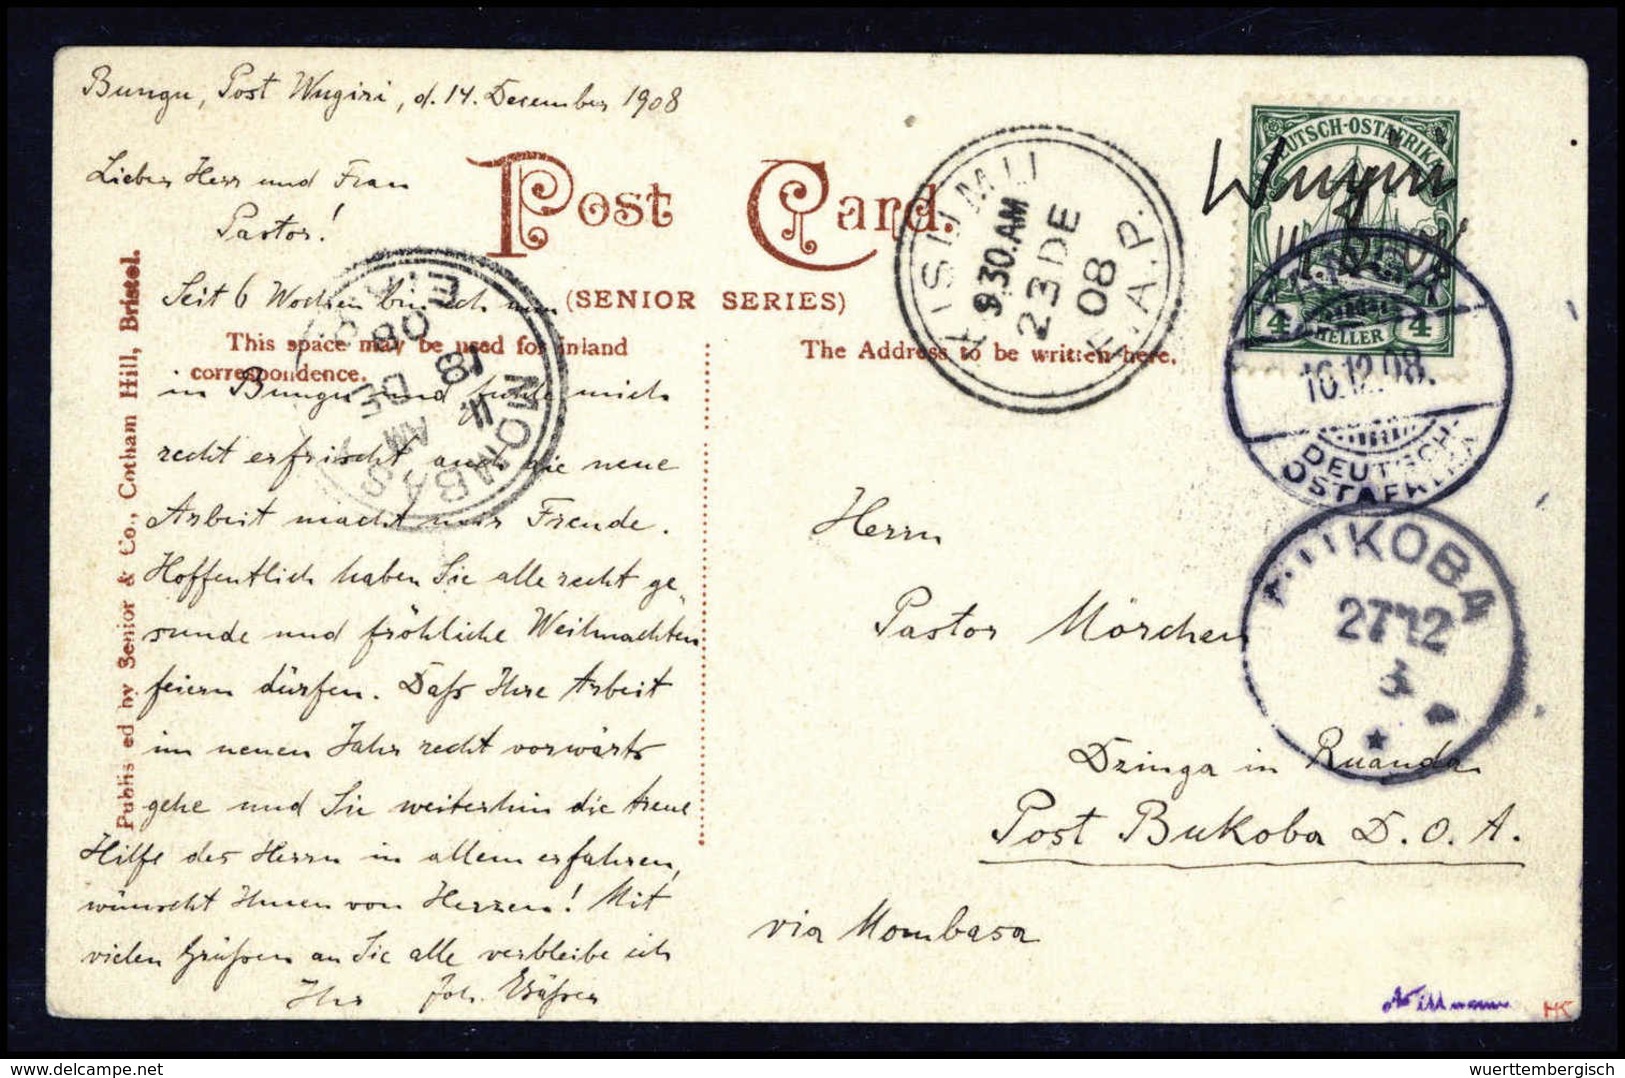 Bungu, Post Wugiri, d. 14. Dezember 1908
Lieber Herr und Frau
Pastor!
Seit 6 Wochen bin ich nun
in Bungu und fühle mich
recht erfrischt, auch die neue
Arbeit macht mir Freude.
Hoffentlich haben Sie alle recht ge-
sunde und fröhliche Weihnachten
feiern dürfen. Daß Ihre Arbeit
im neuen Jahr recht vorwärts
gehe und Sie weiterhin die treue
Hilfe des Herrn in allem erfahren,
wünscht Ihnen von Herzen! Mit
vielen Grüßen an Sie alle verbleibe ich
Ihr Joh.
Post Card.
(SENIOR SERIES)
This space may be used for inland
correspondence.
The Address to be written here.
Publis ed by Senior & Co., Cotham Hill, Bristol.
MOMBASA
11 AM
18 DE
08
KISUMU
9.30.AM
23 DE
08
E.A.P.
DEUTSCH-OSTAFRIKA
4 HELLER 4
Wugiri
16.12.08.
DEUTSCH-
OSTAFRIKA
BUKOBA
27 12
Herrn
Pastor Mörchen
Dzinga in Ruanda
Post Bukoba D. O. A.
via Mombasa
HK
wuerttembergisch